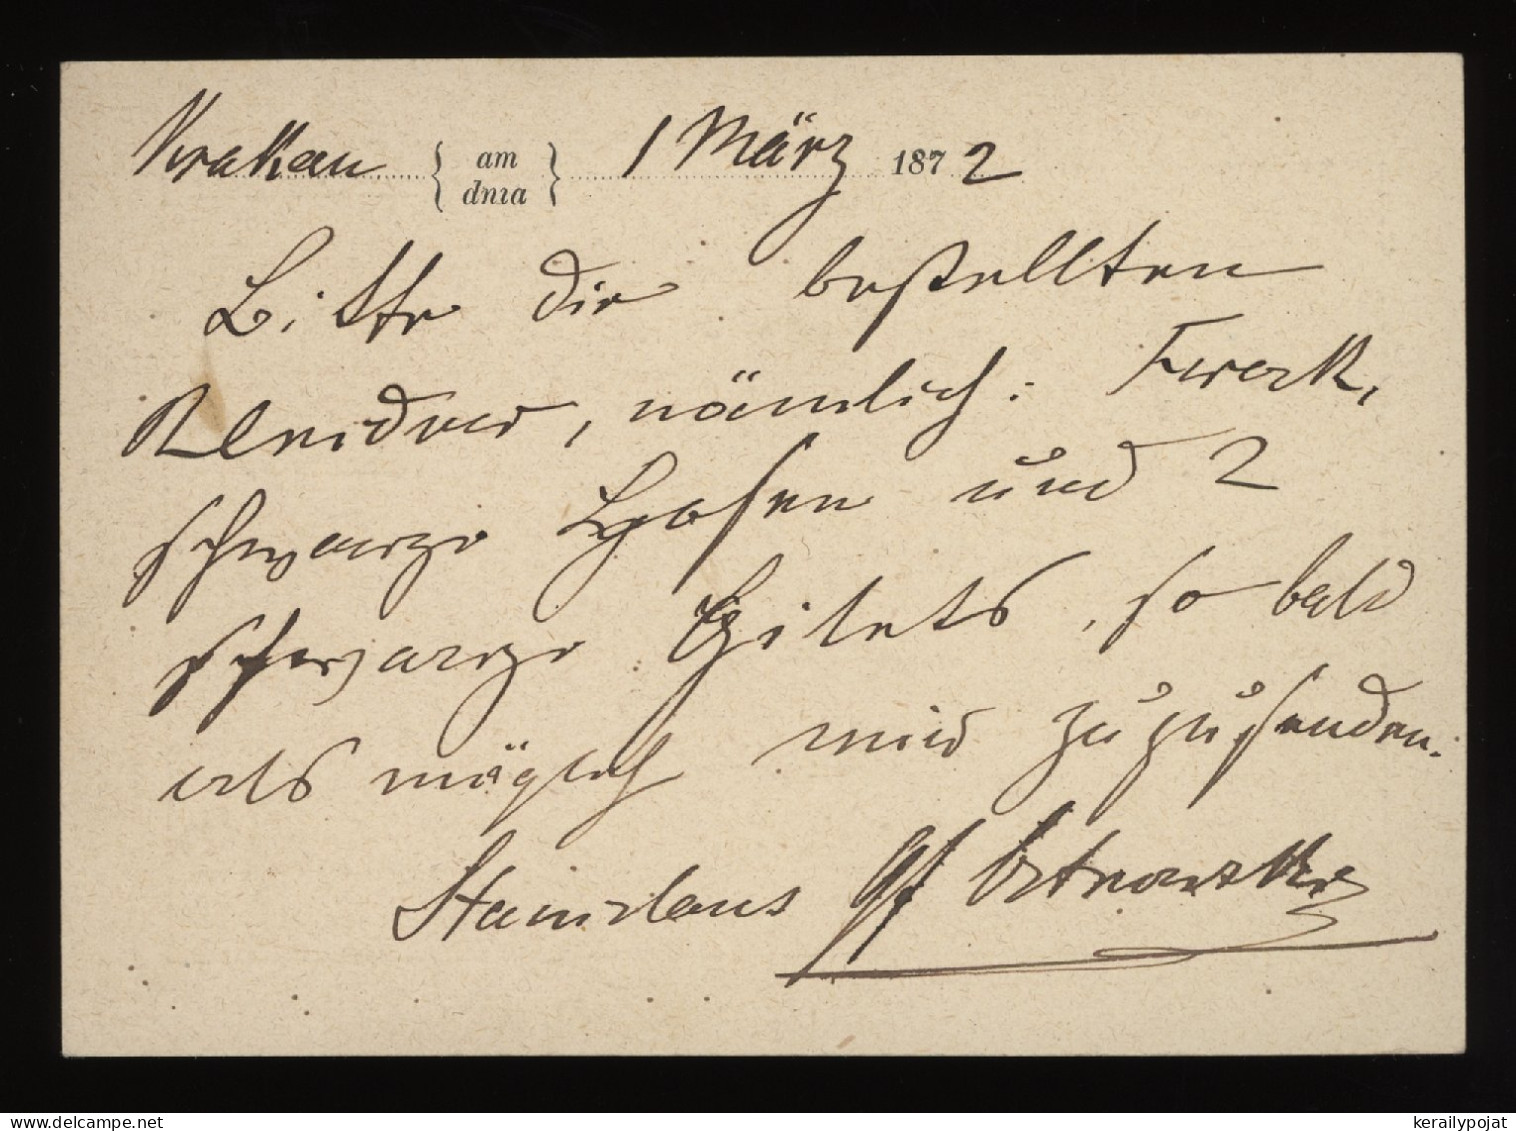 Krakau { am dnia } 1 März 1872
Bitte die bestellten
Kleider, nämlich: Frack,
schwarze Hosen und 2
schwarze Gilets, so bald
als möglich mir zuzusenden.
Stanislaus Gf Ostrowski
kerailypojat.com